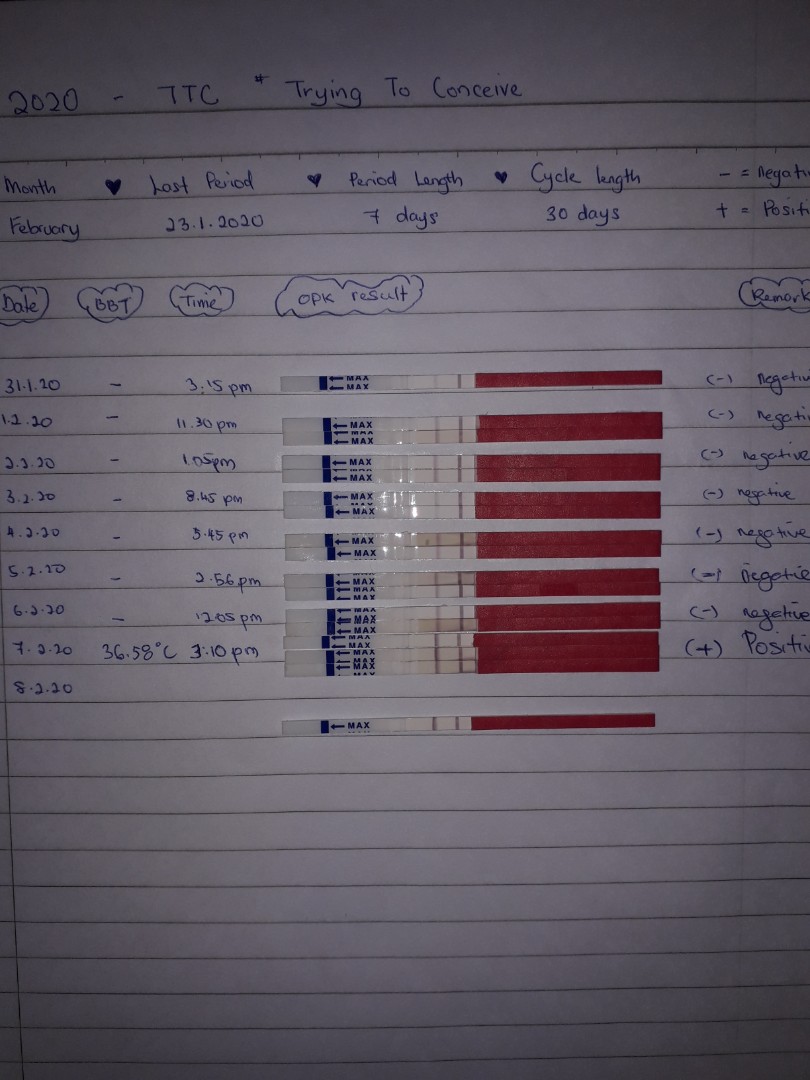 2020 - TTC * Trying To Conceive
Month ♥ Last Period ♥ Period Length ♥ Cycle length - = Negati
February 23.1.2020 7 days 30 days + = Positi
Date BBT Time OPK result Remark
31.1.20 - 3:15 pm MAX MAX (-) Negativ
1.2.20 - 11.30 pm MAX MAX (-) Negati
2.2.20 - 1.05pm MAX MAX (-) negative
3.2.20 - 8.45 pm MAX MAX (-) negative
4.2.20 - 3.45 pm MAX MAX (-) negative
5.2.20 - 2.56 pm MAX MAX (-) negative
6.2.20 - 12.05 pm MAX MAX (-) negative
7.2.20 36.58°C 3:10 pm MAX MAX MAX MAX (+) Positiv
8.2.20
MAX